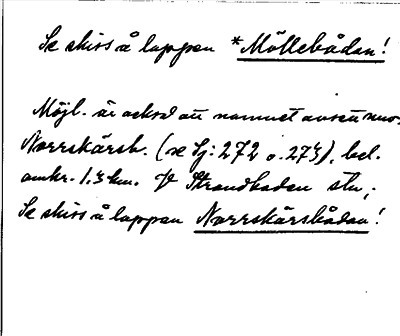 Se skiss å lappen *Möllebådan!
Möjl. är också att namnet avsett nuv.
Norrskärsb. (se Sj: 272 o. 273), bel.
omkr. 1.3 km. Strandbaden stn,.
Se skiss å lappen Norrskärsbådan!